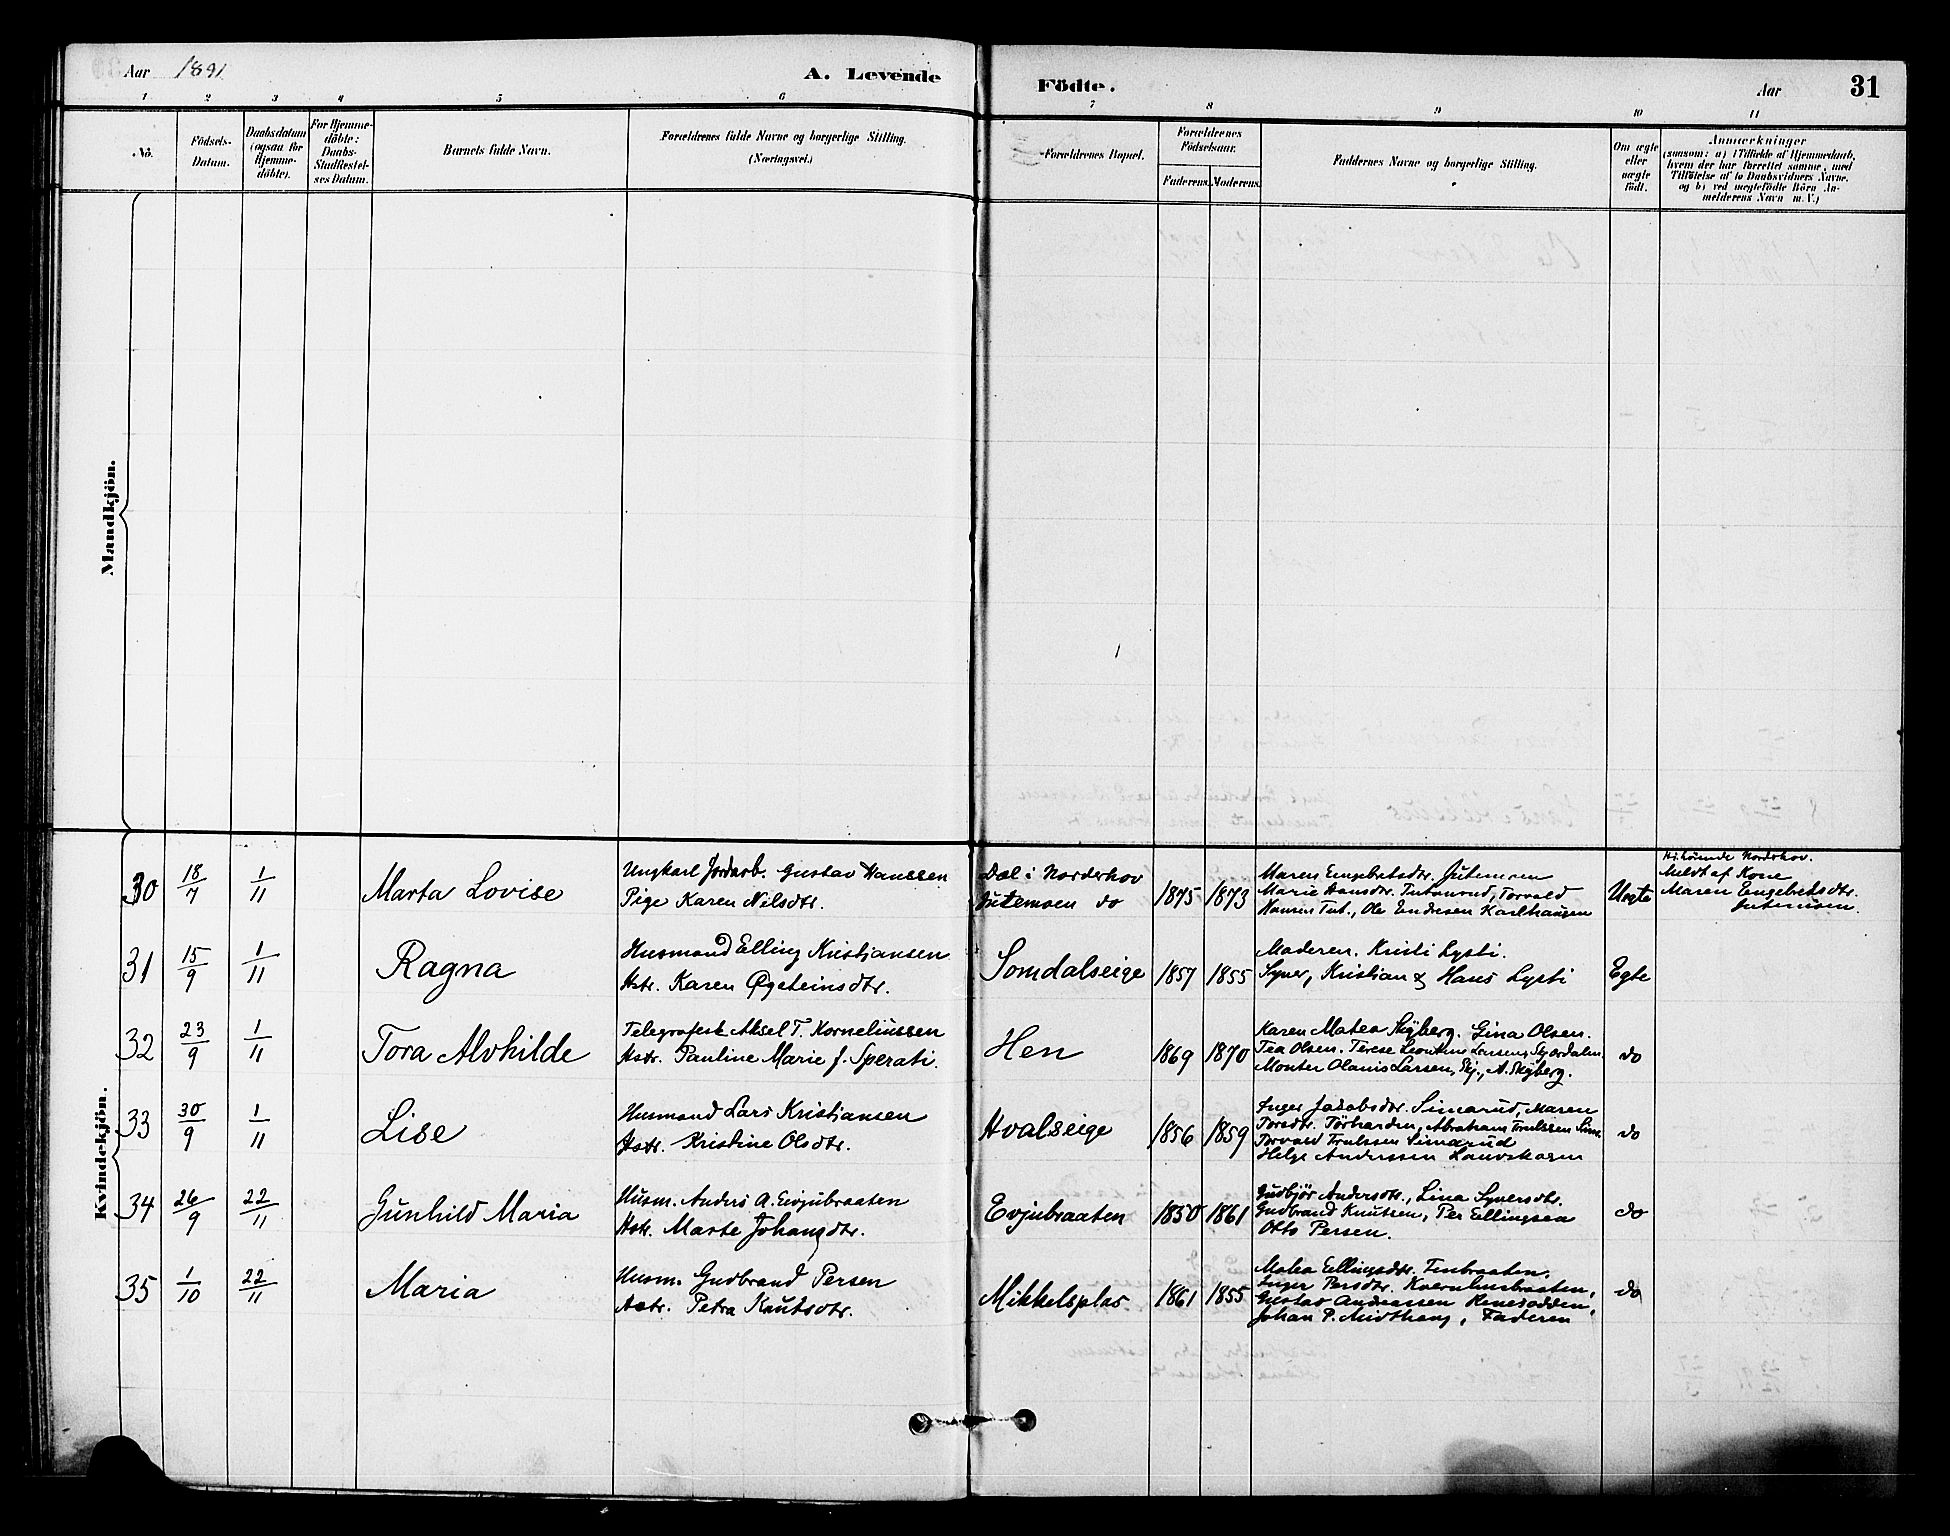 Aar 1891
A. Levende Födte.
Aar
31
1 2 3 4 5 6 7 8 9 10 11
No.
Födsels-Datum.
Daabsdatum (ogsaa for Hjemmedöbte).
For Hjemmedöbte: Daabs-Stadfæstelses Datum.
Barnets fulde Navn.
Forældrenes fulde Navne og borgerlige Stilling.
(Næringsvei.)
Forældrenes Bopæl.
Forældrenes Födselsaar.
Faderens. Moderens.
Faddernes Navne og borgerlige Stilling.
Om ægte eller uægte födt.
Anmærkninger
(saasom: a) i Tilfælde af Hjemmedaab,
hvem der har forrettet samme, med
Tilföielse af to Daabsvidners Navne.
og b) ved uægtefödte Börn An-
melderens Navn m.V.)
Mandkjön.
Kvindekjön.
30 18/7 1/11 Marta Lovise
Ungkarl Jordarb. Gustav Hanssen
Pige Karen Nilsdtr.
Dæl i Norderhov
Jutemoen do
1875 1873
Maren Engebretsdtr. Jutemoen
Marie Hansdtr. Torvald
Ole Endresen Karlhaugen
Uegte
Norderhov.
Meldt af Kone
Maren Engebretsdtr.
Jutemoen.
31 15/9 1/11 Ragna
Husmand Elling Kristiansen
Hstr. Karen Øysteinsdtr.
Somdalseige
1857 1855
Moderen. Kristi Lysti.
Syver, Kristian & Hans Lysti
Egte
32 23/9 1/11 Tora Alvhilde
Telegrafest. Aksel T. Korneliussen
Hstr. Pauline Marie f. Sperati.
Hen
1869 1870
Karen Matea Skÿberg. Gina Olsen.
Tea Olsen. Terese Leontine
Montør Olanis Larsen, A. Skÿberg.
do
33 30/9 1/11 Lise
Husmand Lars Kristiansen
Hstr. Kristine Olsdtr.
Hvalseige
1856 1859
Inger Jakobsdtr. Simarud, Maren
Abraham Trulssen Sim.
Torvald Trulssen Simarud
Helge Anderssen Lauvskogen
do
34 26/9 22/11 Gunhild Maria
Husm. Anders A. Evjubraaten
Hstr. Marte Johansdtr.
Evjubraaten
1850 1861
Gudbjör Andersdtr., Lina Syversdtr.
Gudbrand Knutsen, Per Ellingsen
Otto Persen.
do
35 1/10 22/11 Maria
Husm. Gudbrand Persen
Hstr. Petra Knutsdtr.
Mikkelsplas
1861 1855
Matea Ellingsdtr.
Inger Persdtr.
Gustav Andreassen
Johan P. Midthaug, Faderen
do